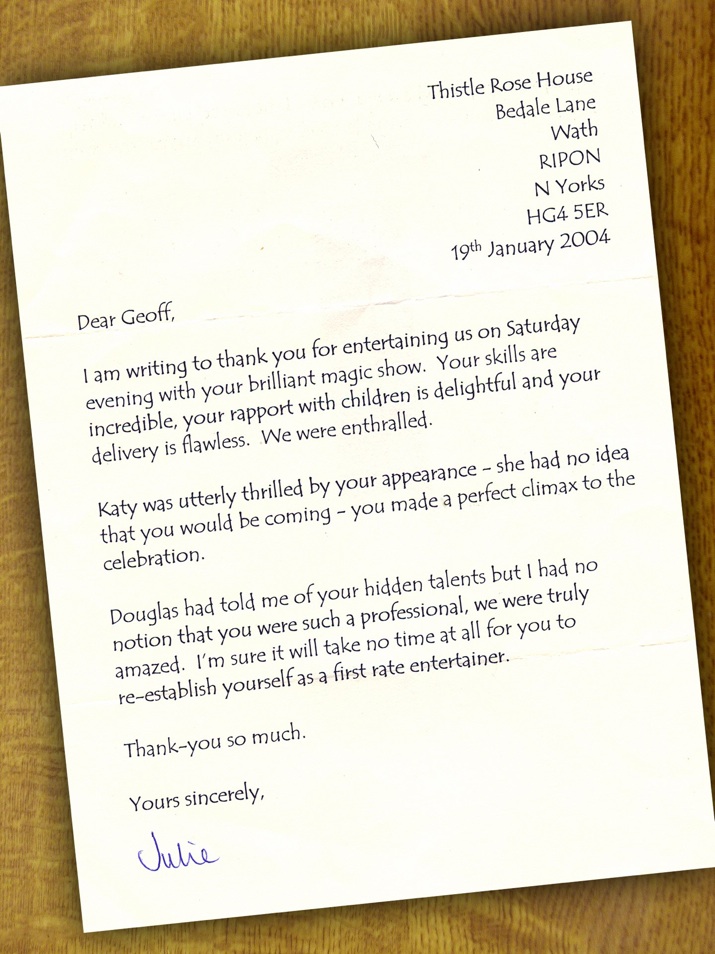 Thistle Rose House
Bedale Lane
Wath
RIPON
N Yorks
HG4 5ER
19th January 2004
Dear Geoff,
I am writing to thank you for entertaining us on Saturday
evening with your brilliant magic show. Your skills are
incredible, your rapport with children is delightful and your
delivery is flawless. We were enthralled.
Katy was utterly thrilled by your appearance – she had no idea
that you would be coming – you made a perfect climax to the
celebration.
Douglas had told me of your hidden talents but I had no
notion that you were such a professional, we were truly
amazed. I'm sure it will take no time at all for you to
re-establish yourself as a first rate entertainer.
Thank-you so much.
Yours sincerely,
Julie